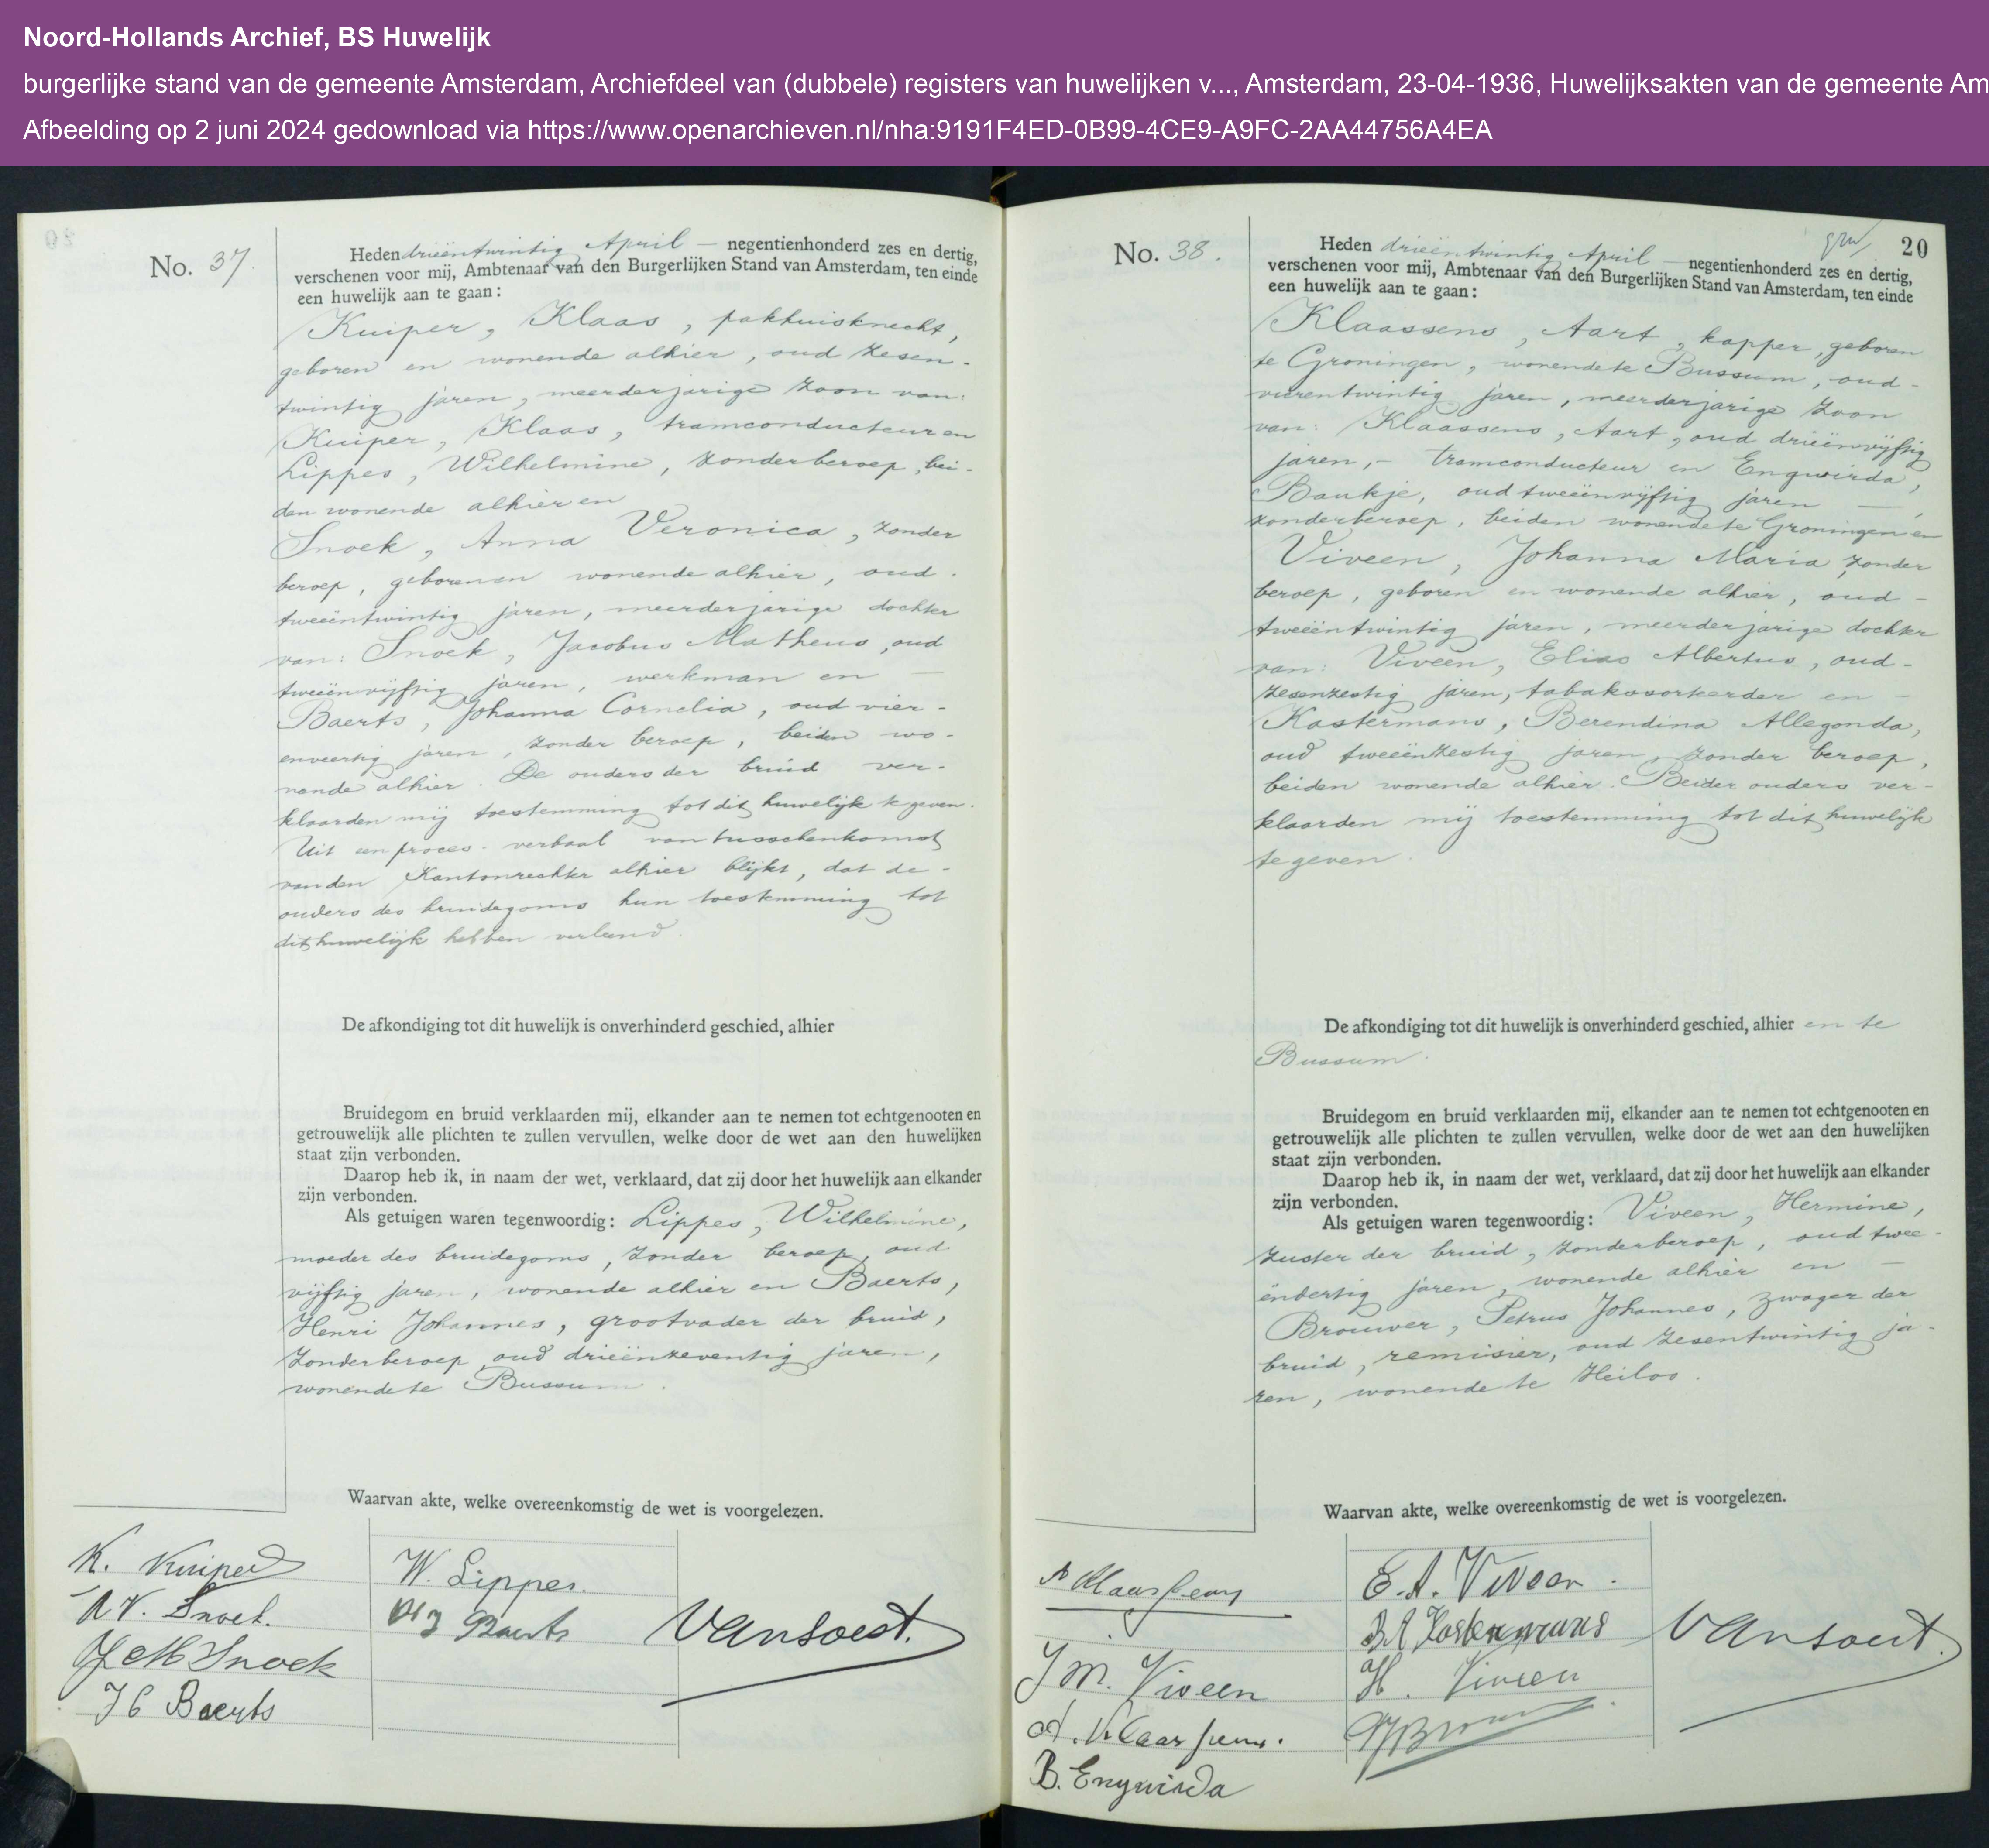 Noord-Hollands Archief, BS Huwelijk
burgerlijke stand van de gemeente Amsterdam, Archiefdeel van (dubbele) registers van huwelijken v..., Amsterdam, 23-04-1936, Huwelijksakten van de gemeente Am
Afbeelding op 2 juni 2024 gedownload via https://www.openarchieven.nl/nha:9191F4ED-0B99-4CE9-A9FC-2AA44756A4EA
No. 37.
Heden drieëntwintig April — negentienhonderd zes en dertig,
verschenen voor mij, Ambtenaar van den Burgerlijken Stand van Amsterdam, ten einde
een huwelijk aan te gaan:
Kuiper, Klaas, pakhuisknecht,
geboren en wonende alhier, oud zesen-
twintig jaren, meerderjarige zoon van:
Kuiper, Klaas, tramconducteur en
Lippes, Wilhelmine, zonder beroep, bei-
den wonende alhier en
Snoek, Anna Veronica, zonder
beroep, geboren en wonende alhier, oud
tweeëntwintig jaren, meerderjarige dochter
van: Snoek, Jacobus Matheus, oud
tweeënvijftig jaren, werkman en —
Baerts, Johanna Cornelia, oud vier-
enveertig jaren, zonder beroep, beiden wo-
nende alhier. De ouders der bruid ver-
klaarden mij toestemming tot dit huwelijk te geven.
Uit een proces-verbaal van tusschenkomst
van den Kantonrechter alhier blijkt, dat de-
ouders des bruidegoms hun toestemming tot
dit huwelijk hebben verleend.
De afkondiging tot dit huwelijk is onverhinderd geschied, alhier
Bruidegom en bruid verklaarden mij, elkander aan te nemen tot echtgenooten en
getrouwelijk alle plichten te zullen vervullen, welke door de wet aan den huwelijken
staat zijn verbonden.
Daarop heb ik, in naam der wet, verklaard, dat zij door het huwelijk aan elkander
zijn verbonden.
Als getuigen waren tegenwoordig: Lippes, Wilhelmine,
moeder des bruidegoms, zonder beroep, oud
vijftig jaren, wonende alhier en Baerts,
Henri Johannes, grootvader der bruid,
zonder beroep, oud drieënzeventig jaren,
wonende te Bussum.
Waarvan akte, welke overeenkomstig de wet is voorgelezen.
K. Kuiper
A V. Snoek.
J M Snoek
J C Baerts
W. Lippes.
H J Baerts
Vansoest.
20
No. 38.
Heden drieëntwintig April — negentienhonderd zes en dertig,
verschenen voor mij, Ambtenaar van den Burgerlijken Stand van Amsterdam, ten einde
een huwelijk aan te gaan:
Klaassens, Aart, kapper, geboren
te Groningen, wonende te Bussum, oud-
vierentwintig jaren, meerderjarige zoon
van: Klaassens, Aart, oud drieënvijftig
jaren, - tramconducteur en Engwirda,
Baukje, oud tweeënvijftig jaren —,
zonder beroep, beiden wonende te Groningen en
Viveen, Johanna Maria, zonder
beroep, geboren en wonende alhier, oud -
tweeëntwintig jaren, meerderjarige dochter
van: Viveen, Elias Albertus, oud-
zesenzestig jaren, tabakssorteerder en -
Kastermans, Berendina Allegonda,
oud tweeënzestig jaren, zonder beroep,
beiden wonende alhier. Beider ouders ver-
klaarden mij toestemming tot dit huwelijk
te geven.
De afkondiging tot dit huwelijk is onverhinderd geschied, alhier en te
Bussum.
Bruidegom en bruid verklaarden mij, elkander aan te nemen tot echtgenooten en
getrouwelijk alle plichten te zullen vervullen, welke door de wet aan den huwelijken
staat zijn verbonden.
Daarop heb ik, in naam der wet, verklaard, dat zij door het huwelijk aan elkander
zijn verbonden.
Als getuigen waren tegenwoordig: Viveen, Hermine,
zuster der bruid, zonder beroep, oud twee-
ëndertig jaren, wonende alhier en —
Brouwer, Petrus Johannes, zwager der
bruid, remisier, oud zesentwintig ja-
ren, wonende te Heiloo.
Waarvan akte, welke overeenkomstig de wet is voorgelezen.
A Klaassens
J M. Viveen
A. Klaassens.
B. Engwirda
E. A. Viveen.
B A Kastermans
H. Viveen
Vansoest.